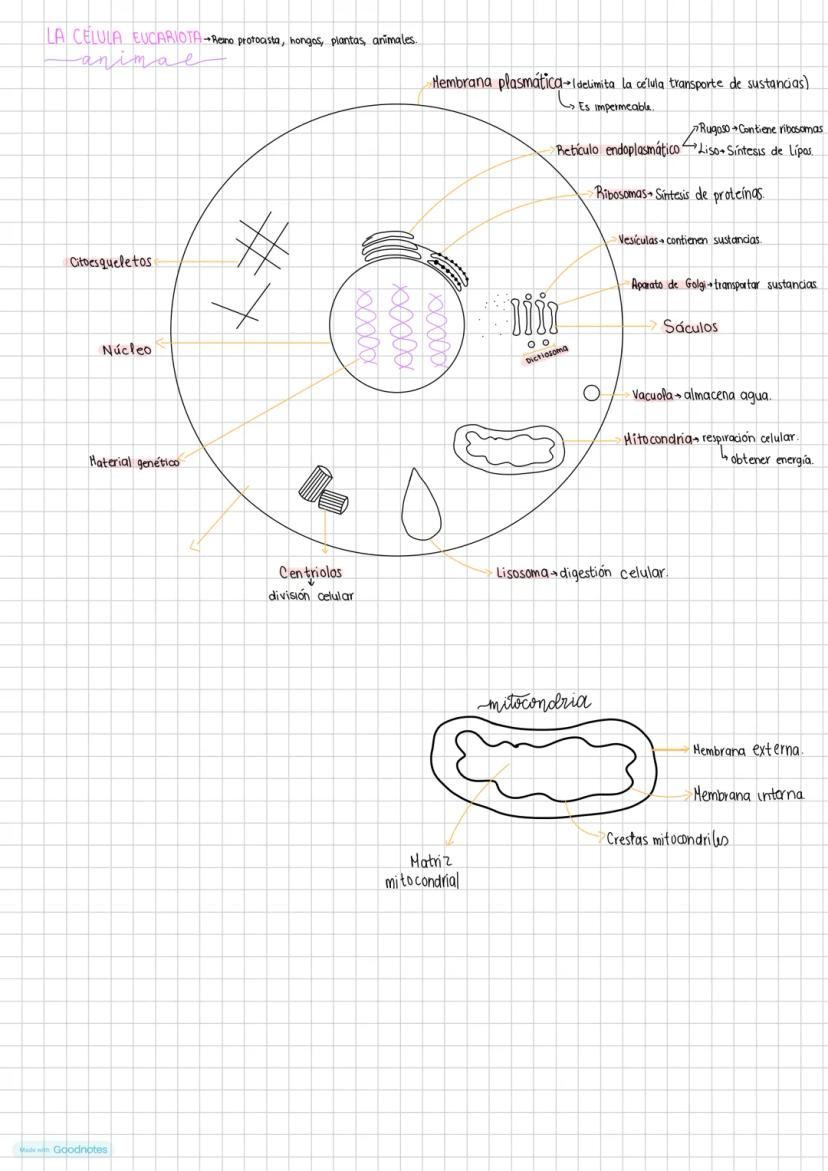 LA CÉLULA EUCARIOTA→Reino protoctista, hongos, plantas, animales.
animae
Membrana plasmática→(delimita la célula transporte de sustancias)
↳ Es impermeable.
Rugoso→Contiene ribosomas
Retículo endoplasmático
Liso→Síntesis de lípos.
Ribosomas→Síntesis de proteínas.
Vesículas→contienen sustancias.
Citoesqueletos
Aparato de Golgi→transportar sustancias.
Sáculos
Núcleo
Dictiosoma
Vacuola→almacena agua.
Mitocondria→respiración celular.
↳obtener energía.
Material genético
Centriolos
Lisosoma→digestión celular.
división celular
mitocondria
Membrana externa.
Membrana interna
Crestas mitocondriles
Matriz
mitocondrial
Made with Goodnotes